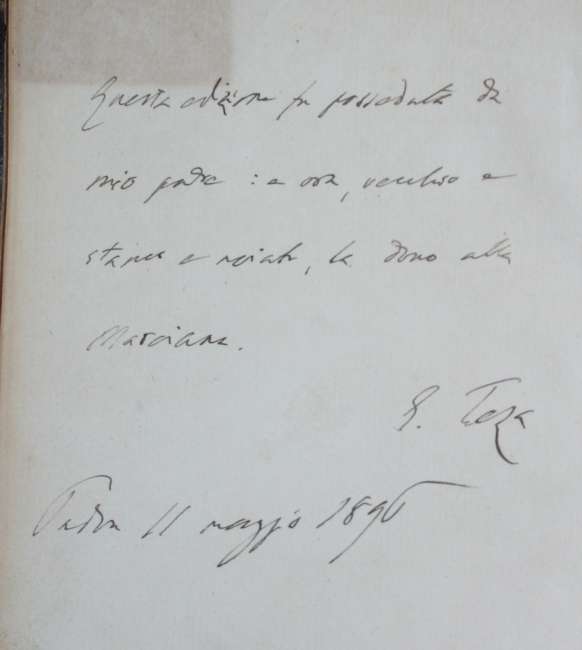 Questa edizione fu posseduta da
mio padre : e ora, vecchio e
stanco e noiato, la dono alla
Marciana.
E. Teza
Padova 11 maggio 1896